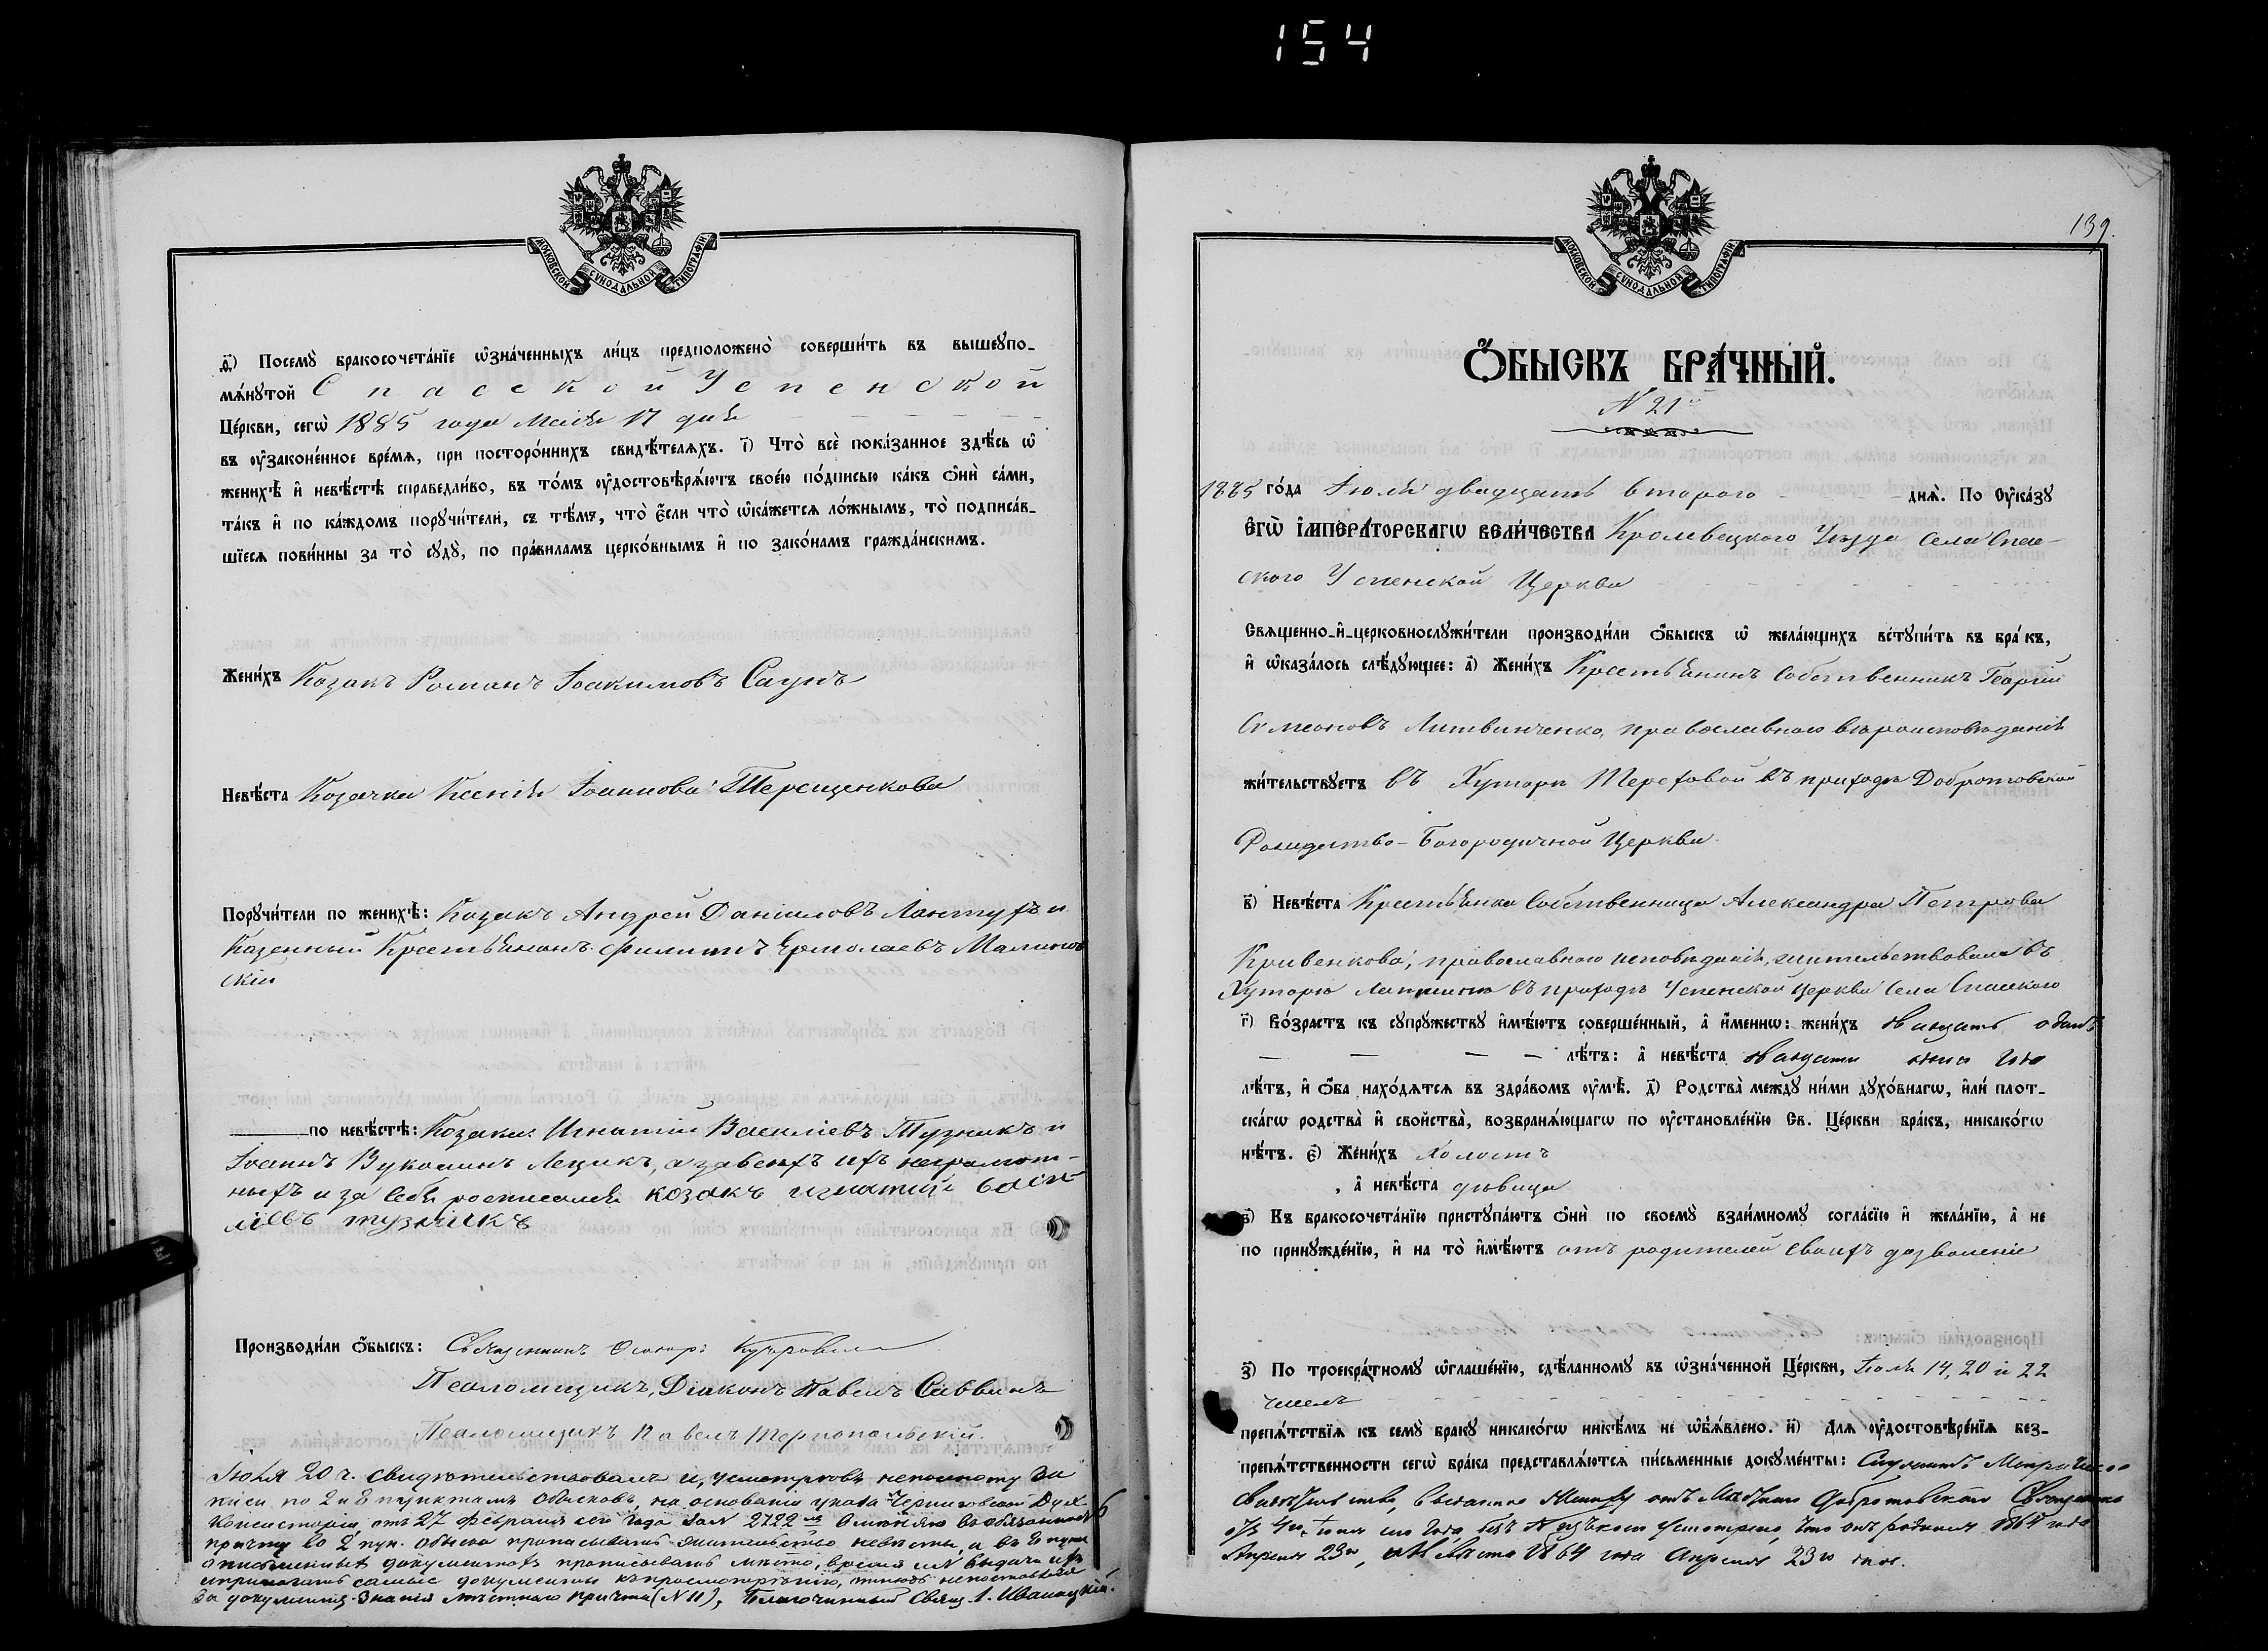 154
МОСКОВСКОЙ СѴНОДАЛЬНОЙ ТИПОГРАФІИ
ѳ҃) Посемꙋ̀ бракосочета́нїе ѡ҆зна́ченныхъ ли́цъ предположено̀ соверши́ть въ вышеꙋпо-
мѧ́нꙋтой Спасской Успенской
Це́ркви, сегѡ̀ 1885 года Маія 17 дня
въ ᲂу҆зако́ненное вре́мѧ, при посторо́ннихъ свидѣ́телѧхъ. і҃) Что̀ всѐ пока́занное здѣ́сь ѡ҆
женихѣ̀ и҆ невѣ́стѣ справедли́во, въ то́мъ ᲂу҆достовѣрѧ́ютъ своє́ю по́дписью ка́къ ѻ҆нѝ са́ми,
та́къ и҆ по ка́ждомъ порꙋчи́тели, съ тѣ́мъ, что̀ є҆́сли что̀ ѡ҆ка́жетсѧ ло́жнымъ, то̀ подписа́в-
шїесѧ пови́нны за то̀ сꙋдꙋ̀, по пра́виламъ церко́внымъ и҆ по зако́намъ гражда́нскимъ.
Жени́хъ Козакъ Романъ Іоакимовъ Саунъ
Невѣ́ста Козачка Ксенія Іоаннова Терещенкова
Порꙋчи́тели по женихѣ̀: Козакъ Андрей Даніиловъ Лантухъ и
Казенный Крестьянинъ Филиппъ Ермолаевъ Малинов
скій
по невѣ́стѣ: Козаки Игнатій Василіевъ Тузникъ и
Іоаннъ Лещикъ, а за всехъ ихъ неграмот-
ныхъ и за себя росписался козакъ игнатий васи
лієвъ тузникъ
Производи́ли ѻ҆́быскъ: Священникъ
Псаломщикъ, Діаконъ Павелъ Саввинъ
Псаломщикъ Павелъ Тернопольскій.
Іюля 20 ч. свидѣтельствовалъ и, усмотрѣвъ неполноту за
писи по 2 и 8 пунктамъ обысковъ, на основаніи указа Черниговской Дух.
Консисторіи отъ 27 Февраля сего года за N 2722 въ обязанность
причту во 2 пун. обыска прописывать жительство невѣсты, а въ 8 пунк.
о письменныхъ документахъ прописывать мѣсто, время и N выдачи ихъ
и прилагать самые документы
за документъ знанія мѣстнаго причта (N 11), Благочинный Свящ. І. Иваницкій.
139.
МОСКОВСКОЙ СѴНОДАЛЬНОЙ ТИПОГРАФІИ
Ѻ҆́БЫСКЪ БРА́ЧНЫЙ.
N 21й
1885 го́да Іюля двадцать второго днѧ̀. По ᲂу҆ка́зꙋ
Є҆ГѠ̀ І҆МПЕРА́ТОРСКАГѠ ВЕЛИ́ЧЕСТВА Кролевецкого Уѣзда Села Спас-
ского Успенской Церкви
Свѧщенно-и҆-церковнослꙋжи́тели производи́ли ѻ҆́быскъ ѡ҆ жела́ющихъ встꙋпи́ть въ бра́къ,
и҆ ѡ҆каза́лось слѣ́дꙋющее: а҃) Жени́хъ Крестьянинъ Собственникъ Георгій
Симеоновъ Литвинченко, православного вѣроисповѣданія
жи́тельствꙋетъ въ Хуторѣ Тереховой въ приходѣ Добротовской
Рождество-Богородичной Церкви.
в҃) Невѣ́ста Крестьянка Собственница Александра Петрова
Кривенкова, православного исповѣданія, жительствовала въ
Хуторѣ въ приходѣ Успенской Церкви Села Спасского
г҃) Во́зрастъ къ сꙋпрꙋ́жествꙋ и҆мѣ́ютъ соверше́нный, а҆ и҆́меннѡ: жени́хъ двадцать одинъ
лѣ́тъ: а҆ невѣ́ста двадцати
лѣ́тъ, и҆ ѻ҆́ба нахо́дѧтсѧ въ здра́вомъ ᲂу҆мѣ̀. д҃) Родства̀ междꙋ̀ ни́ми дꙋхо́внагѡ, и҆лѝ плот-
ска́гѡ родства̀ и҆ сво́йства̀, возбранѧ́ющагѡ по ᲂу҆становле́нїю Св. Це́ркви бра́къ, никако́гѡ
нѣ́тъ. є҃) Жени́хъ холостъ
, а҆ невѣ́ста дѣвица
ѕ҃) Къ бракосочета́нїю пристꙋпа́ютъ ѻ҆нѝ по своемꙋ̀ взаи́мномꙋ согла́сїю и҆ жела́нїю, а҆ не
по принꙋжде́нїю, и҆ на то̀ и҆мѣ́ютъ отъ родителей своихъ дозволеніе
з҃) По троекра́тномꙋ ѡ҆глаше́нїю, сдѣ́ланномꙋ въ ѡ҆зна́ченной Це́ркви, Іюля 14, 20 и 22
чиселъ
препѧ́тствїѧ къ семꙋ̀ бра́кꙋ никако́гѡ нике́мъ не ѡ҆б̾ѧ́влено. и҃) Длѧ ᲂу҆достовѣре́нїѧ без-
препѧ́тственности сегѡ̀ бра́ка представлѧ́ютсѧ пи́сьменные докꙋме́нты:
Свидѣтельство, выданное жениху отъ Мѣстнаго Добротовскаго Священника
Апрѣля 23го, а невѣста 1864 года Апрѣля 23го дня.